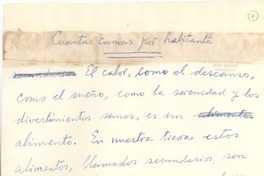 Cuantas camas por habitante
El calor, como el descanso,
como el sueño, como la serenidad y los
divertimientos sanos, es un
alimento. En nuestra tierra estos
alimentos, llamados secundarios, son